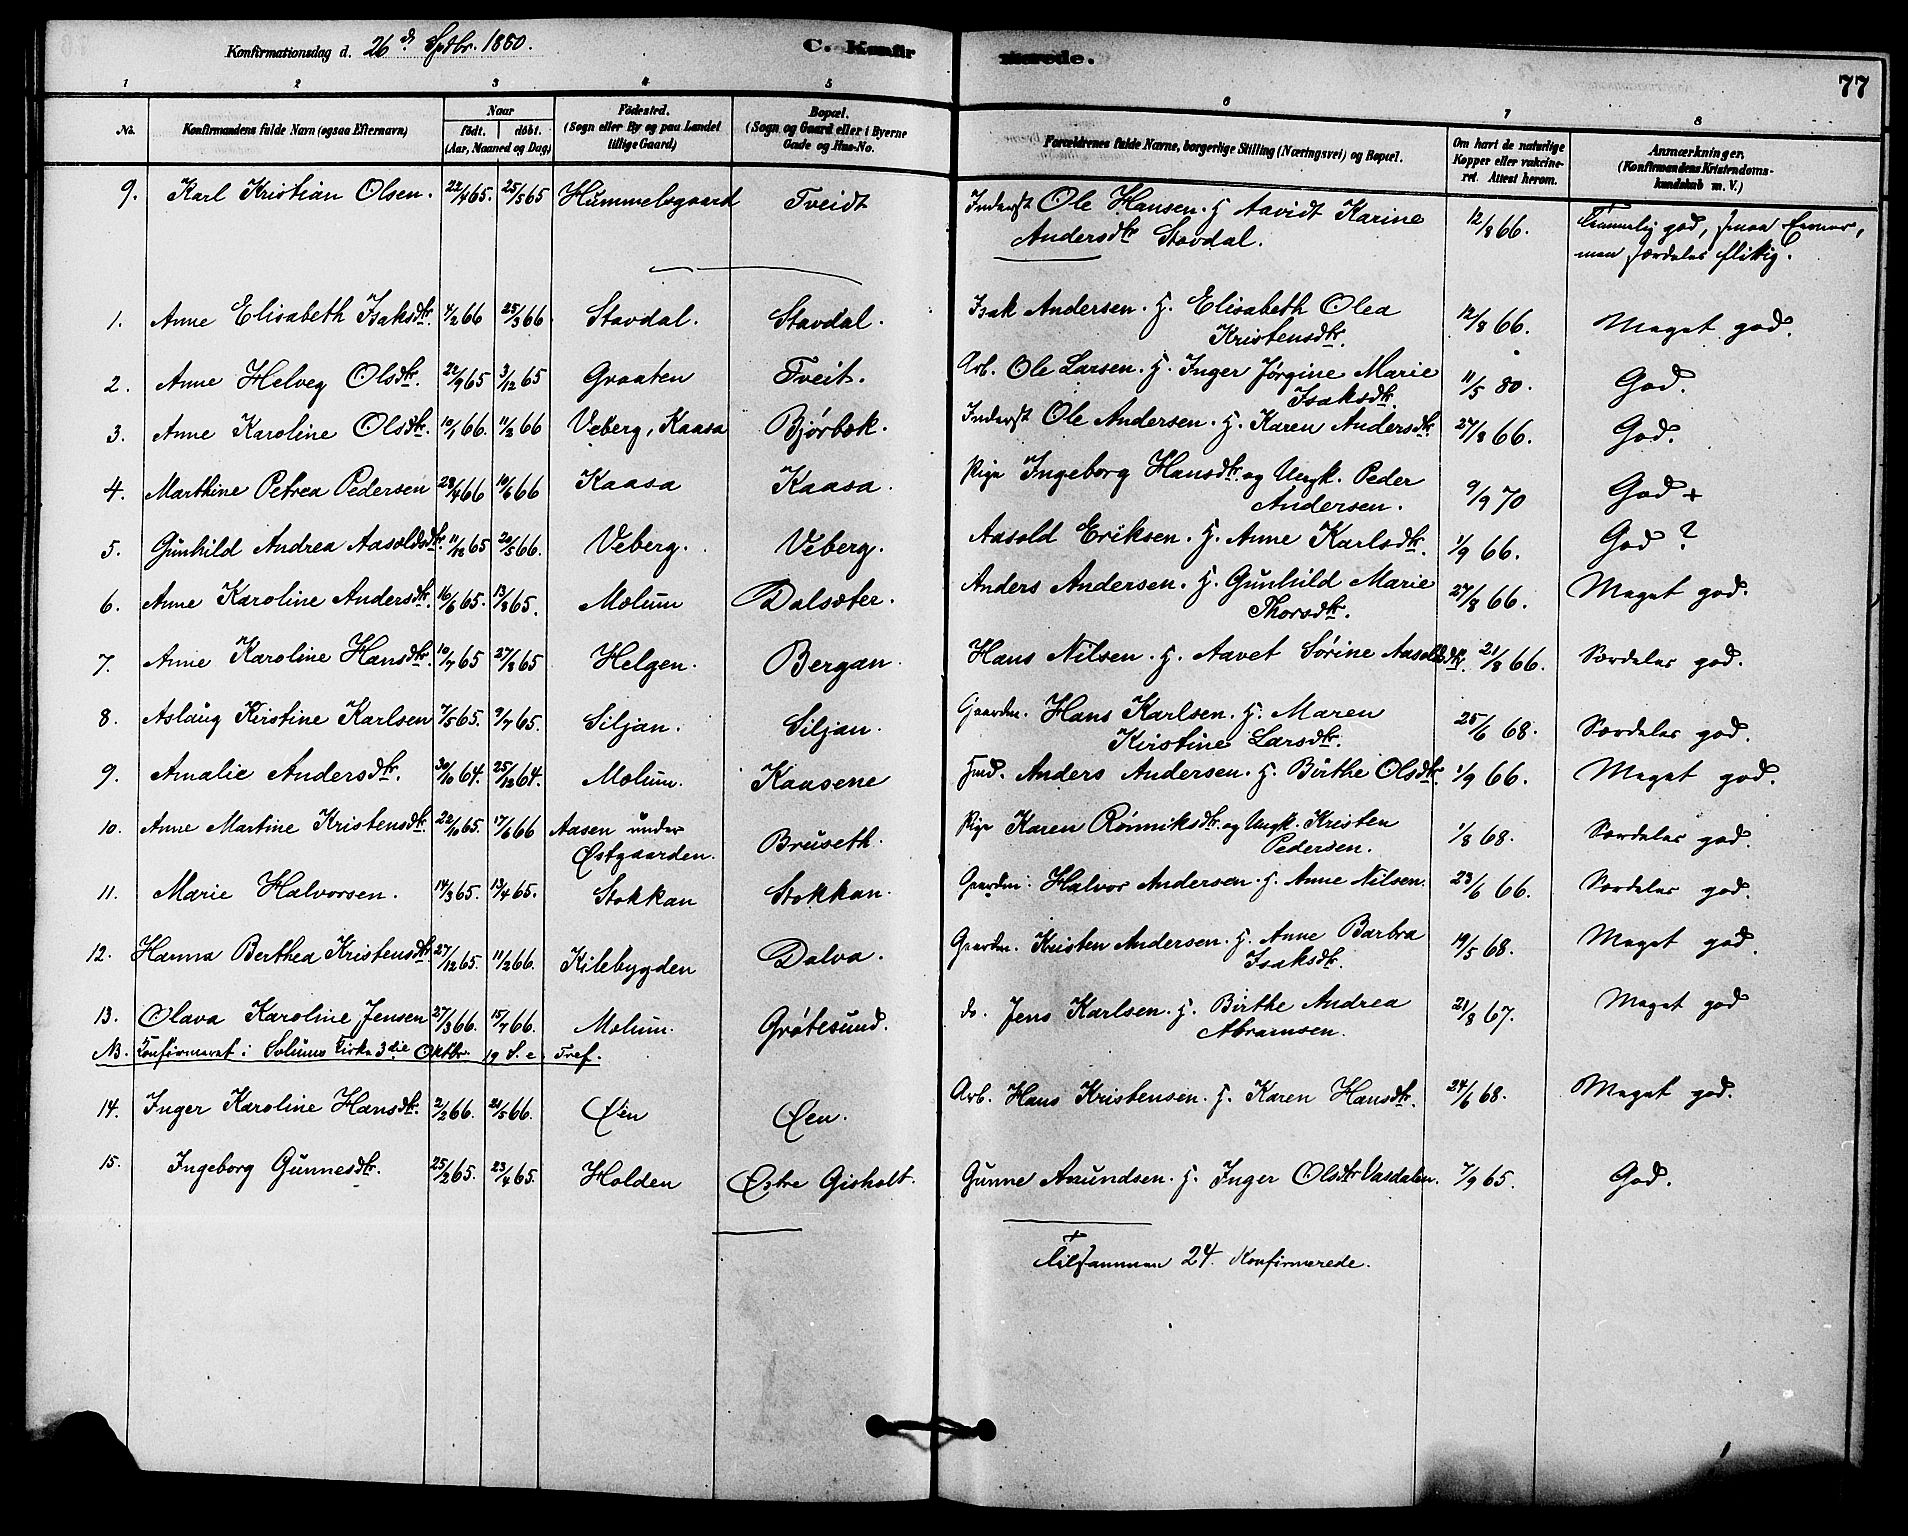 Konfirmationsdag d. 26de Septbr. 1880.
C. Konfirmerede.
77
1 2 3 4 5 6 7 8
No. Konfirmandens fulde Navn (ogsaa Efternavn) Naar födt. döbt. (Aar, Maaned og Dag) Födested. (Sogn eller By og paa Landet tillige Gaard) Bopæl. (Sogn og Gaard eller i Byerne Gade og Hus-No. Forældrenes fulde Navne, borgerlige Stilling (Næringsvei) og Bopæl. Om havt de naturlige Kopper eller vakcineret. Attest herom. Anmærkninger. (Konfirmandens Kristendomskundskab m. V.)
9. Karl Kristian Olsen. 22/4 65. 25/5 65 Hummelsgaard Tveidt Inderst Ole Hansen. H. Aavidt Karine 12/8 66. Temmelig god, smaa Evner,
Andersdtr Stavdal. men særdeles flittig.
1. Anne Elisabeth Isaksdtr. 4/2 66 25/3 66 Stavdal. Stavdal. Isak Andersen. H. Elisabeth Olea 12/8 66. Meget god.
Kristensdtr.
2. Anne Helveg Olsdtr. 22/9 65 3/12 65 Graaten Tveit. Arb. Ole Larsen. H. Inger Jørgine Marie 11/5 80. God.
Isaksdtr
3. Anne Karoline Olsdtr. 10/1 66. 11/2 66 Veberg, Kaasa Bjørbæk. Inderst Ole Andersen. H. Karen Andersdtr 27/8 66. God.
4. Marthine Petrea Pedersen 28/4 66 10/6 66 Kaasa Kaasa. Pige Ingeborg Hansdtr. og Ungk. Peder 9/9 70 God +
Andersen.
5. Gunhild Andrea Aasoldsdtr. 11/10 65 20/5 66. Veberg. Veberg. Aasold Eriksen. H. Anne Karlsdtr. 1/9 66. God ?
6. Anne Karoline Andersdtr. 16/6 65. 13/8 65. Mælum Dalsæter. Anders Andersen. H. Gunhild Marie 27/8 66. Meget god.
Thorsdtr.
7. Anne Karoline Hansdtr. 10/7 65 27/8 65 Helgen. Bergan. Hans Nilsen. H. Aavet Sørine Aasoldsdtr. 21/8 66. Særdeles god.
8. Aslaug Kirstine Karlsen 7/5 65. 9/7 65. Siljan. Siljan. Gaardm. Hans Karlsen. H. Maren 25/6 68. Særdeles god.
Kirstine Larsdtr.
9. Amalie Andersdtr. 30/10 64. 25/12 64. Mælum. Kaasene Hmd. Anders Andersen. H. Birthe Olsdtr. 1/9 66. Meget god.
10. Anne Martine Kristensdtr. 22/10 65. 17/6 66 Aasen under Bruseth. Pige Karen Rønniksdtr. og Ungk. Kristen 1/8 68. Særdeles god.
Østgaarden. Pedersen.
11. Marie Halvorsen. 14/3 65. 13/4 65. Stokkan Stokkan. Gaardm. Halvor Andersen. H. Anne Nilsen. 23/6 66. Særdeles god.
12. Hanna Berthea Kristensdtr. 27/12 65. 11/2 66. Kilebygden Dalva. Gaardm. Kristen Andersen. H. Anne Barbra 19/5 68. Meget god.
Isaksdtr.
13. Olava Karoline Jensen 27/3 66. 15/7 66. Mælum. Grøtesund. do. Jens Karlsen. H. Birthe Andrea 21/8 67. Meget god
Abramsen.
NB. Konfirmeret i Solums Kirke 3die Oktbr. 19 S. e. Tref.
14. Inger Karoline Hansdtr. 2/2 66. 21/5 66. Øen Øen. Arb. Hans Kristensen. H. Karen Hansdtr. 24/6 68. Meget god.
15. Ingeborg Gunnesdtr. 25/2 65. 23/4 65. Holden Østre Gisholt. Gunne Amundsen. H. Inger Olsdtr Vasdalen. 7/9 65. God.
Tilsammen 24 Konfirmerede.